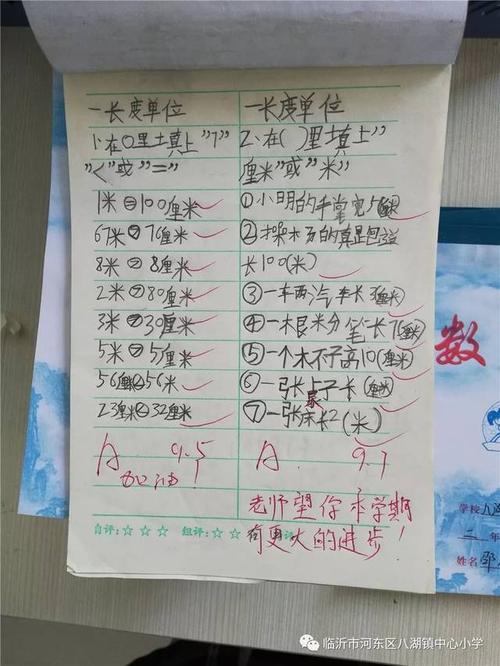 一长度单位
1、在○里土真上">"
"<"或"="
1米=100厘米
67米>76厘米
8米>8厘米
2米>80厘米
3米>30厘米
5米>5厘米
56厘米<56米
23厘米<32厘米
A 9.5
加油!
一长度单位
2、在( )里土真上
厘米"或"米"
①小明的手掌宽5(厘米)
长100(米)
③一车两汽车长3(厘米)
④一根米分笔长7(厘米)
⑤一个木不子高10(厘米)
⑥一张桌子长1(厘米)
⑦一张床长2(米)
A. 9.7
老师望你本学期
有更大的进步!
自评:☆ ☆ ☆ 组评:☆ ☆
数
学校
二年
姓名
临沂市河东区八湖镇中心小学